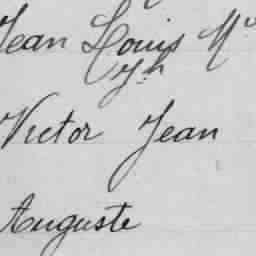 Jean Louis Mie
Jh
Victor Jean
Auguste